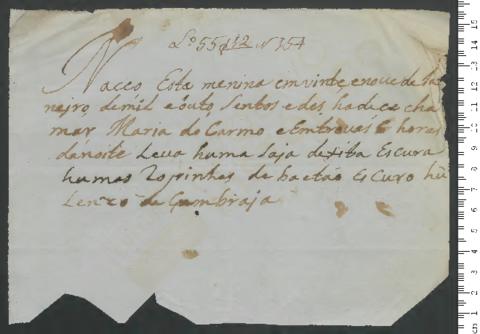 Lo 55 f 12 N 354
Naceo Esta menina em vinte e nove de Ja
neiro de mil e outo Sentos e des ha de ce cha
mar Maria do Carmo e Emtrou as 6 horas
da noite Leva huma Saja de xita Escura
humas Roupinhas de baetão EsCuro hũ
Lenzo de Cambraja